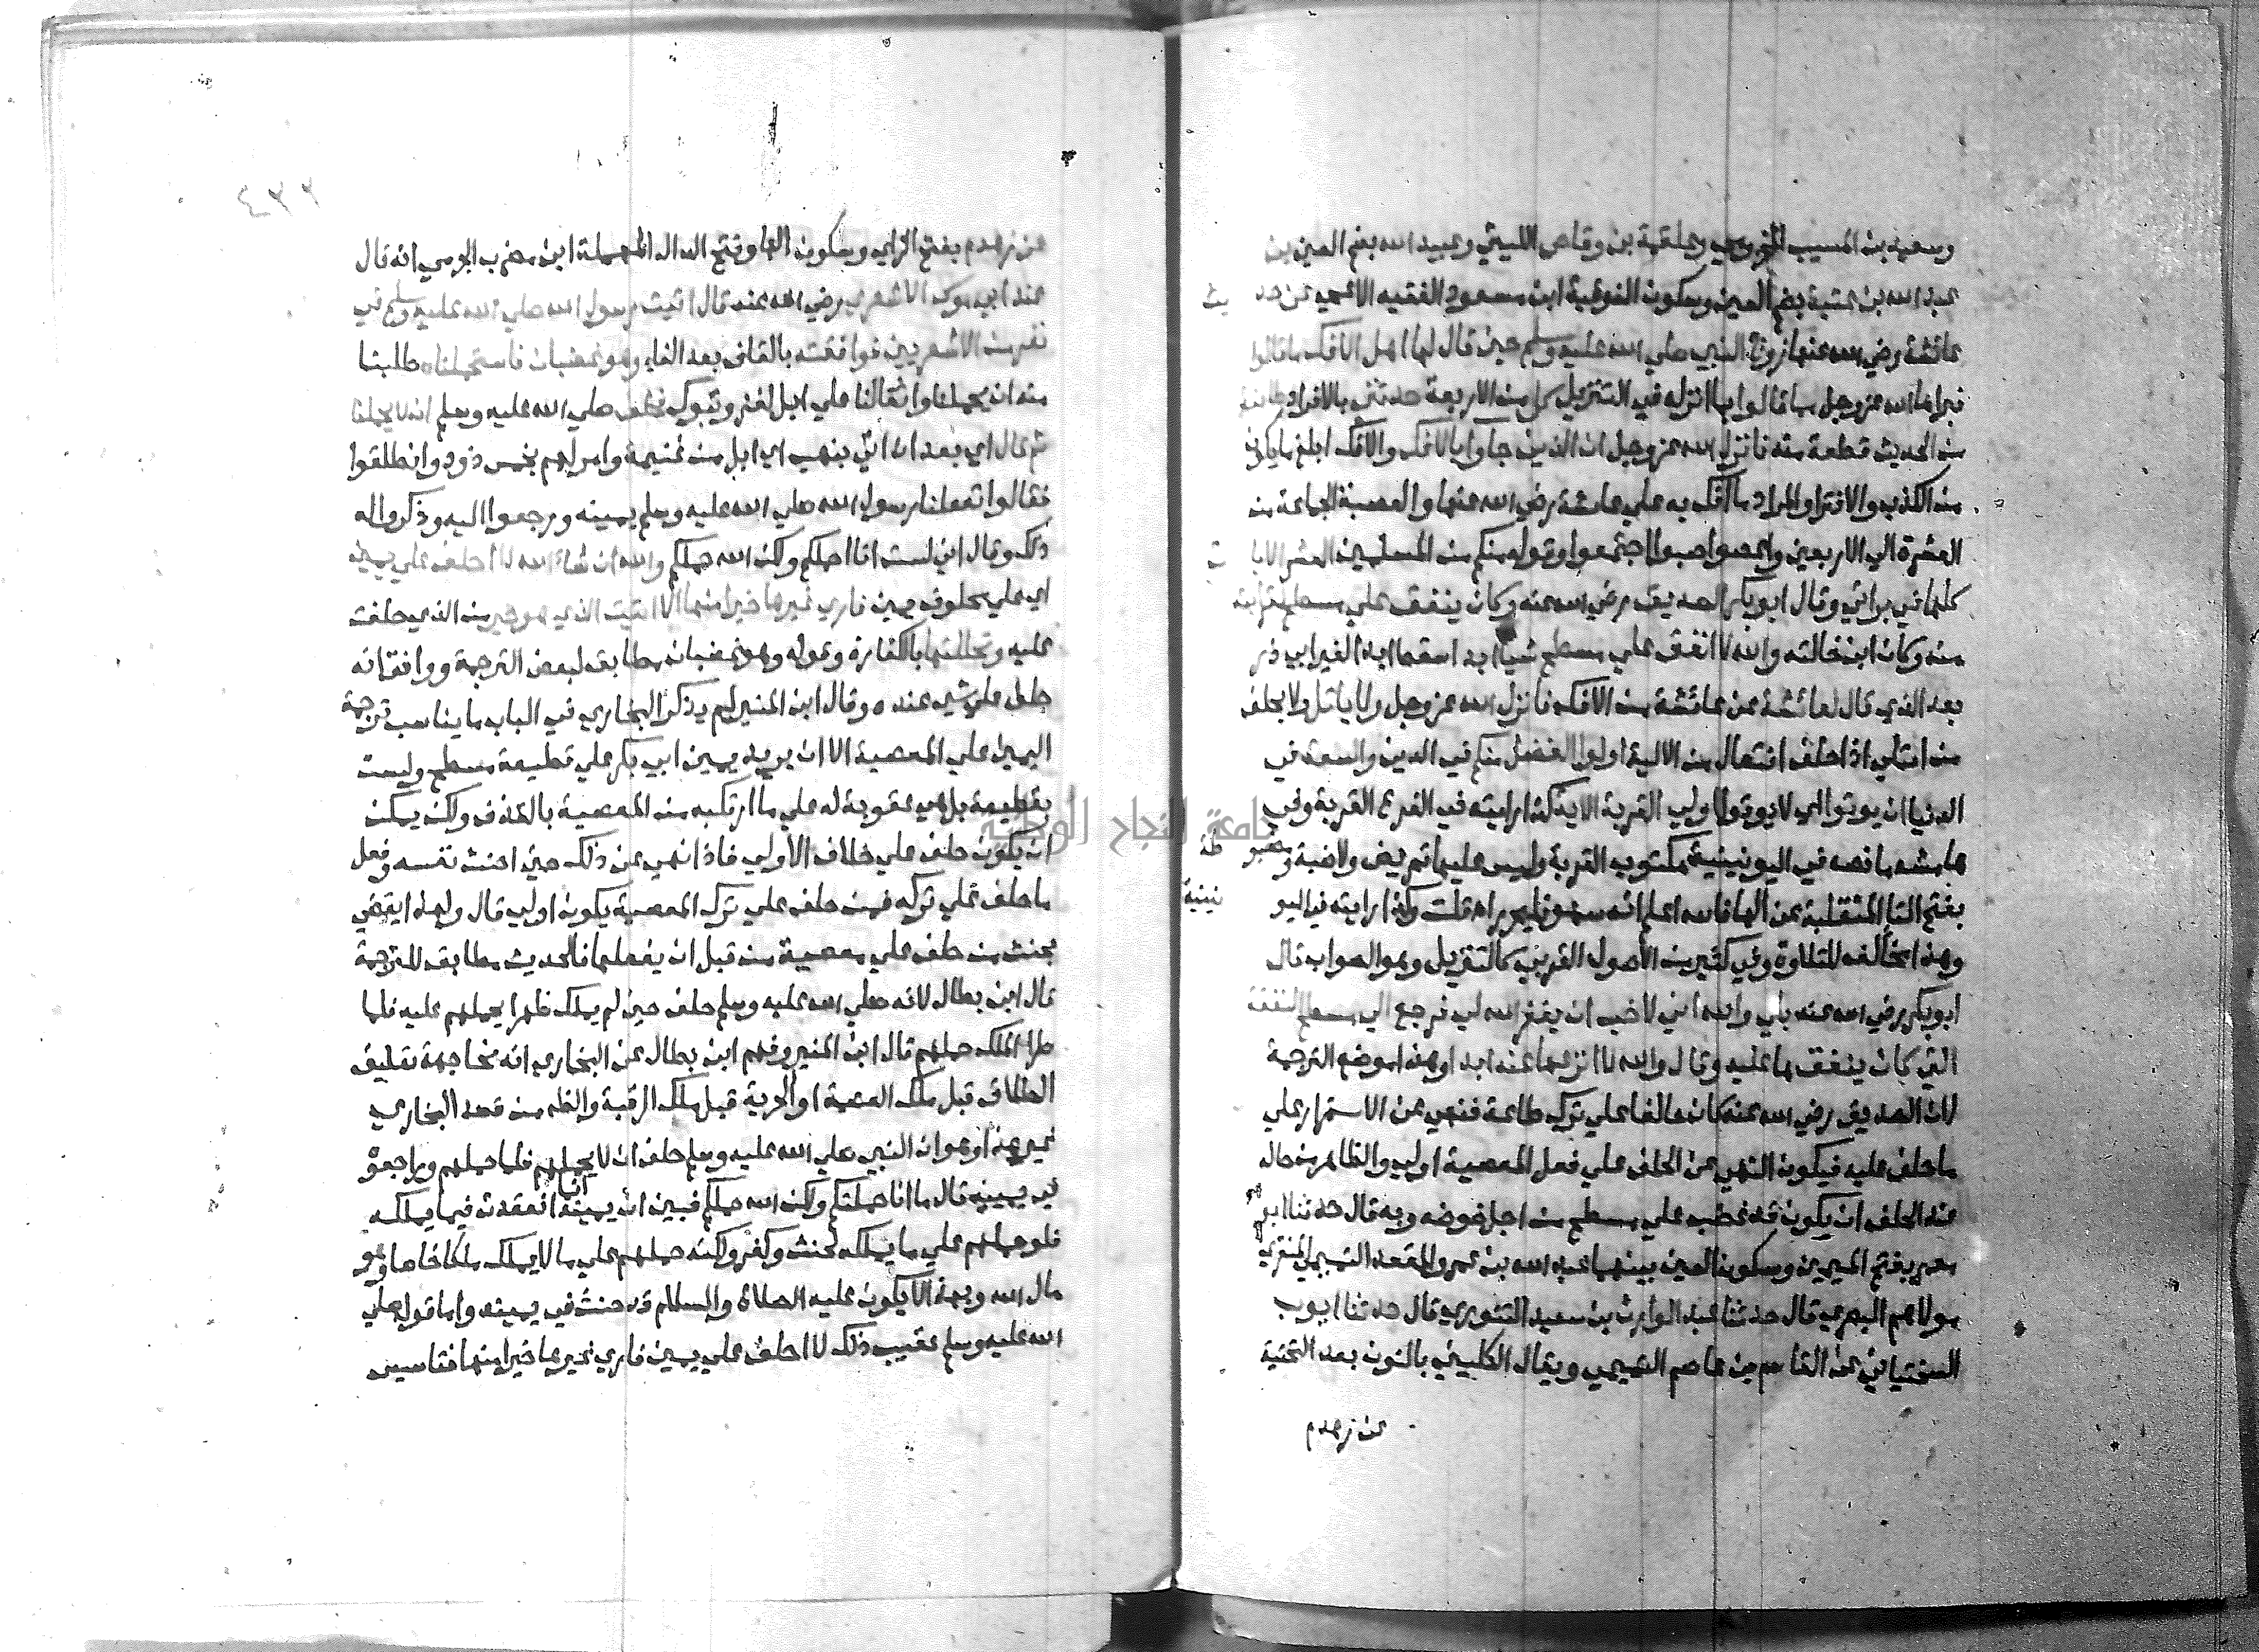 وسعيد بن المسيب المخزومي وعلقمة بن وقاص الليثي وعبيد الله بضم العين بن
عبد الله بن عتبة بضم العين وسكون الفوقية ابن مسعود الفقيه الاعمي عن حديث
عائشة رضي الله عنها زوج النبي صلي الله عليه وسلم حين قال لها اهل الافك ما قالوا
فبراها الله عز وجل مما قالوا بما انزله في التنزيل كل من الاربعة حدثني بالافراد طائفة
من الحديث قطعة منه فانزل الله عز وجل ان الذين جاوا بالافك والافك ابلغ ما يكون
من الكذب والافترا والمراد ما افك به علي عائشة رضي الله عنها والعصبة الجماعة من
العشرة الي الاربعين واعصوصبوا اجتمعوا وقوله منكم من المسلمين العشر الايات
كلها في براتي وقال ابو بكر الصديق رضي الله عنه وكان ينفق علي مسطح لقرابته
منه وكان ابن خالته والله لا انفق علي مسطح شيا ابدا سقط ابدا لغير ابي ذر
بعد الذي قال لعائشة عن عائشة من الافك فانزل الله عز وجل ولا ياتل ولا يحلف
من ايتلي اذا حلف افتعال من الالية اولوا الفضل منكم في الدين والسعة في
الدنيا ان يوتوا اي لا يوتوا اولي القربة الاية كذا رايته في الفرع القربة وفي
هامشه ما نصه في اليونينية مكتوب القربة وليس عليها تمريض ولا ضبة ومضبوطة
بفتح التا المنقلبة عن الها فالله اعلم انه سهو فليحرر اه قلت وكذا رايته في اليونينية
وهذا مخالف للتلاوة وفي كثير من الاصول القربي كالتنزيل وهو الصواب قال
ابو بكر رضي الله عنه بلي والله اني لاحب ان يغفر الله لي فرجع الي مسطح النفقة
التي كان ينفق بها عليه وقال والله لا انزعها عنه ابدا وهذا موضع الترجمة
لان الصديق رضي الله عنه كان حالفا علي ترك طاعة فنهي عن الاستمرار علي
ما حلف عليه فيكون النهي عن الحلف علي فعل المعصية اولي والظاهر من حاله
عند الحلف ان يكون قد غضب علي مسطح من اجل خوضه وبه قال حدثنا ابو
معمر بفتح الميمين وسكون العين بينهما عبد الله بن عمرو المقعد التميمي المنقري
مولاهم البصري قال حدثنا عبد الوارث بن سعيد التنوري قال حدثنا ايوب
السختياني عن القاسم بن عاصم التميمي ويقال الكليني بالنون بعد التحتية
عن زهدم
٢٣٤
عن زهدم بفتح الزاي وسكون الها وفتح الدال المهملة ابن مضرب الجرمي انه قال
عند ابي موسي الاشعري رضي الله عنه قال اتيت رسول الله صلي الله عليه وسلم في
نفر من الاشعريين فوافقته بالقاف بعد الفا وهو غضبان فاستحملناه طلبنا
منه ان يحملنا واثقالنا علي ابل لغزوة تبوك فحلف صلي الله عليه وسلم ان لا يحملنا
ثم قال اي بعد ان اتي بنهب اي ابل من غنيمة وامر لهم بخمس ذود وانطلقوا
فقالوا تغفلنا رسول الله صلي الله عليه وسلم يمينه ورجعوا اليه وذكروا له
ذلك وقال اني لست انا احملكم ولكن الله حملكم والله ان شاء الله لا احلف علي يمين
اي علي محلوف يمين فاري غيرها خيرا منها الا اتيت الذي هو خير من الذي حلفت
عليه وتحللتها بالكفارة وقوله وهو غضبان مطابق لبعض الترجمة ووافق انه
حلف علي شي عنده وقال ابن المنير لم يذكر البخاري في الباب ما يناسب ترجمة
اليمين علي المعصية الا ان يريد يمين ابي بكر علي قطيعة مسطح وليست
بقطيعة بل هي عقوبة له علي ما ارتكبه من المعصية بالقذف ولكن يمكن
ان يكون حلف علي خلاف الاولي فاذا نهي عن ذلك حتي احنث نفسه وفعل
ما حلف علي تركه فمن حلف علي ترك المعصية يكون اولي قال ولهذا يقضي
بحنث من حلف علي معصية من قبل ان يفعلها فالحديث مطابق للترجمة
قال ابن بطال لانه صلي الله عليه وسلم حلف حين لم يملك ظهرا يحملهم عليه فلما
طرا الملك حملهم قال ابن المنير وفهم ابن بطال عن البخاري انه نحا جهة تعليق
الطلاق قبل ملك العصمة او الحرية قبل ملك الرقبة والظاهر من قصد البخاري
غير هذا وهو ان النبي صلي الله عليه وسلم حلف ان لا يحملهم فلما حملهم وراجعوه
في يمينه قال ما انا حملتكم ولكن الله حملكم فبين ان يمينه انما انعقدت فيما يملكه
فلو حملهم علي ما يملكه لحنث وكفر ولكنه حملهم علي ما لا يملك ملكا خاصا وهو
مال الله وبهذا لا يكون عليه الصلاة والسلام قد حنث في يمينه واما قوله صلي
الله عليه وسلم عقيب ذلك لا احلف علي يمين فاري غيرها خيرا منها فتاسيس
جامعة النجاح الوطنية